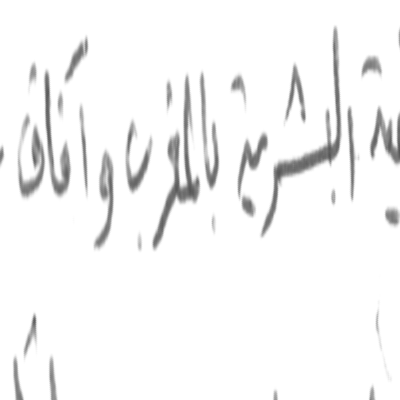 البشرية بالمغرب وآفاق